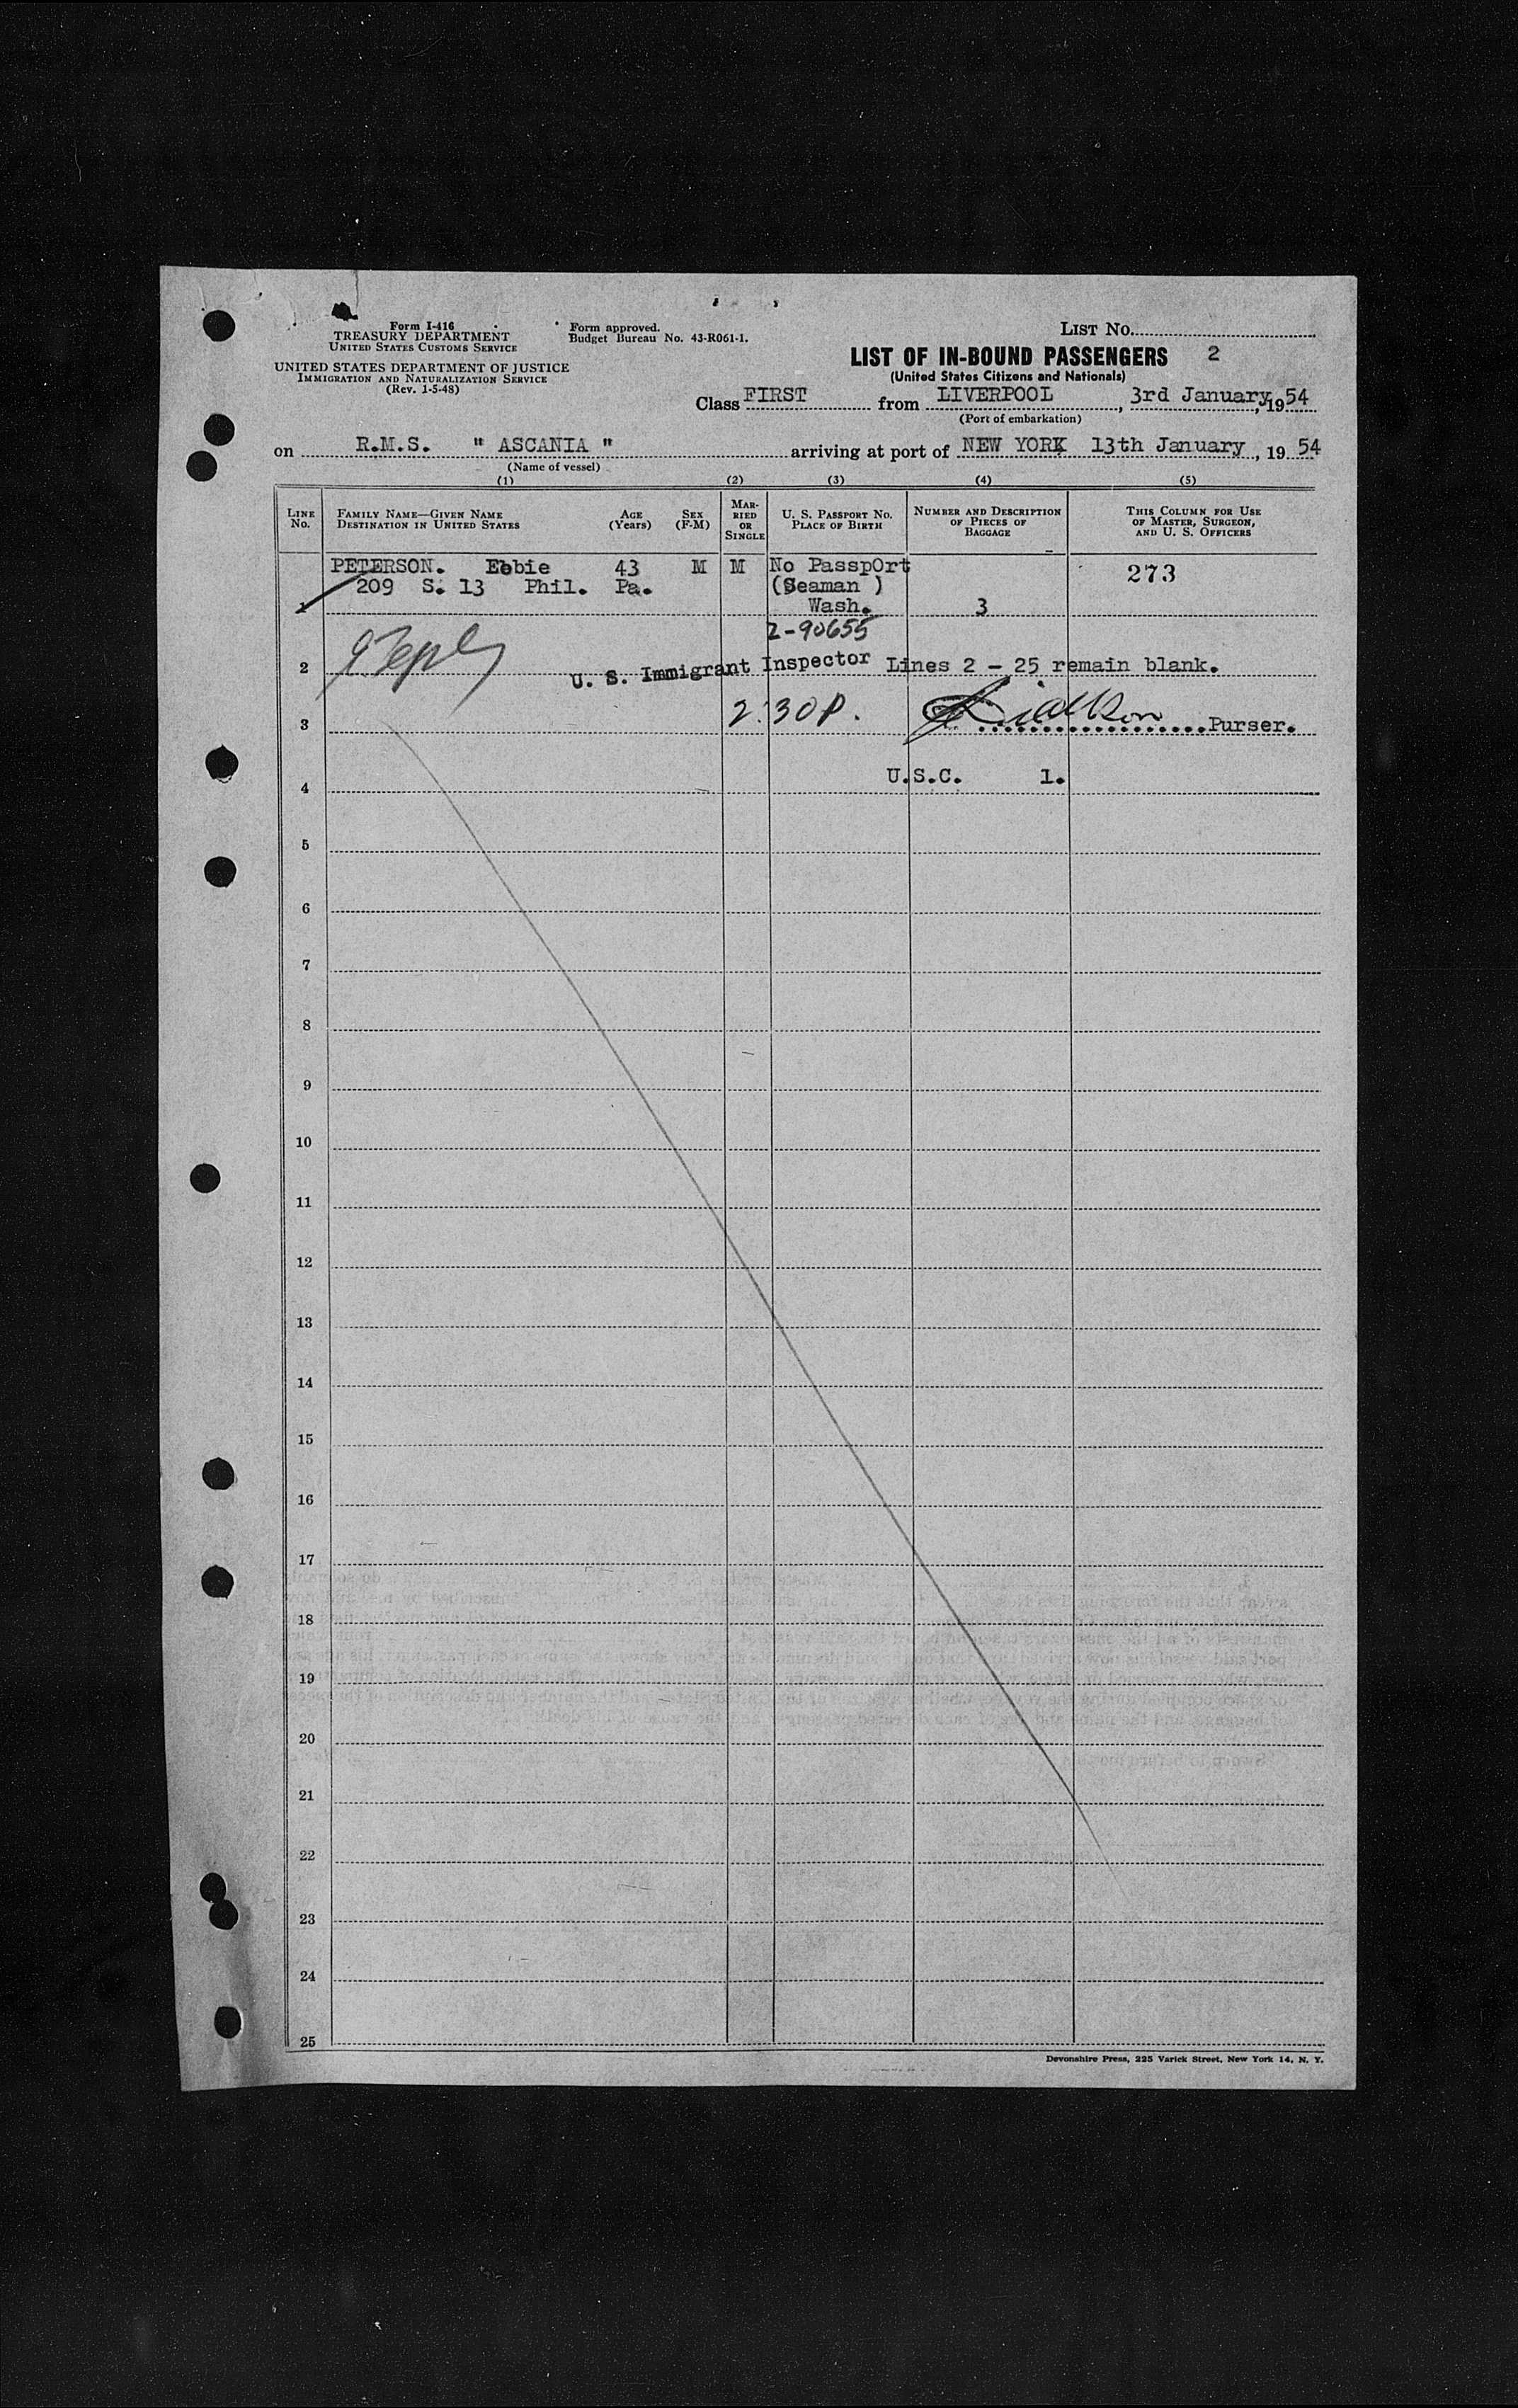 Form I-416
TREASURY DEPARTMENT
UNITED STATES CUSTOMS SERVICE
Form approved.
Budget Bureau No. 43-R061-1.
UNITED STATES DEPARTMENT OF JUSTICE
IMMIGRATION AND NATURALIZATION SERVICE
(Rev. 1-5-48)
LIST NO.
LIST OF IN-BOUND PASSENGERS 2
(United States Citizens and Nationals)
Class FIRST from LIVERPOOL, 3rd January, 1954
(Port of embarkation)
on R.M.S. " ASCANIA " arriving at port of NEW YORK 13th January, 1954
(Name of vessel)
(1) (2) (3) (4) (5)
LINE NO. FAMILY NAME—GIVEN NAME DESTINATION IN UNITED STATES AGE (Years) SEX (F-M) MARRIED OR SINGLE U. S. PASSPORT NO. PLACE OF BIRTH NUMBER AND DESCRIPTION OF PIECES OF BAGGAGE THIS COLUMN FOR USE OF MASTER, SURGEON, AND U. S. OFFICERS
PETERSON. Ebbie 43 M M No PasspOrt 273
209 S. 13 Phil. Pa. (Seaman )
1 Wash. 3
Z-90655
2 U. S. Immigrant Inspector Lines 2 - 25 remain blank.
3 2:30 P. Purser.
U.S.C. 1.
4
5
6
7
8
9
10
11
12
13
14
15
16
17
18
19
20
21
22
23
24
25
Devonshire Press, 225 Varick Street, New York 14, N. Y.